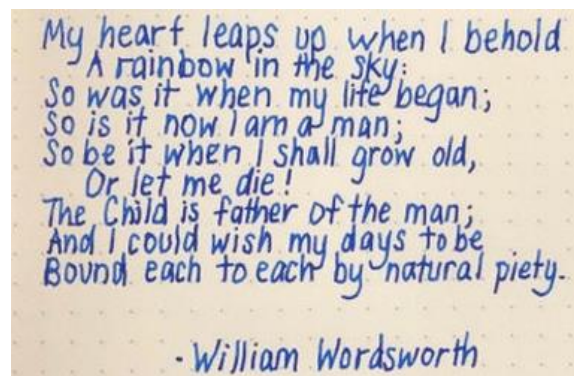 My heart leaps up when I behold
A rainbow in the sky:
So was it when my life began;
So is it now I am a man;
So be it when I shall grow old,
Or let me die!
The Child is father of the man;
And I could wish my days to be
Bound each to each by natural piety.
- William Wordsworth